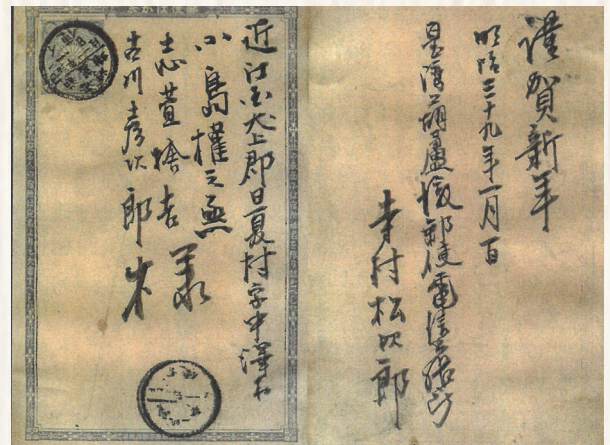 謹賀新年
明治三十九年一月一日
臺灣葫蘆墩郵便電信
寺村松次郎
近江国犬上郡日夏村字中澤
小島權之亟
志萱捨吉
様
古川 彦次郎